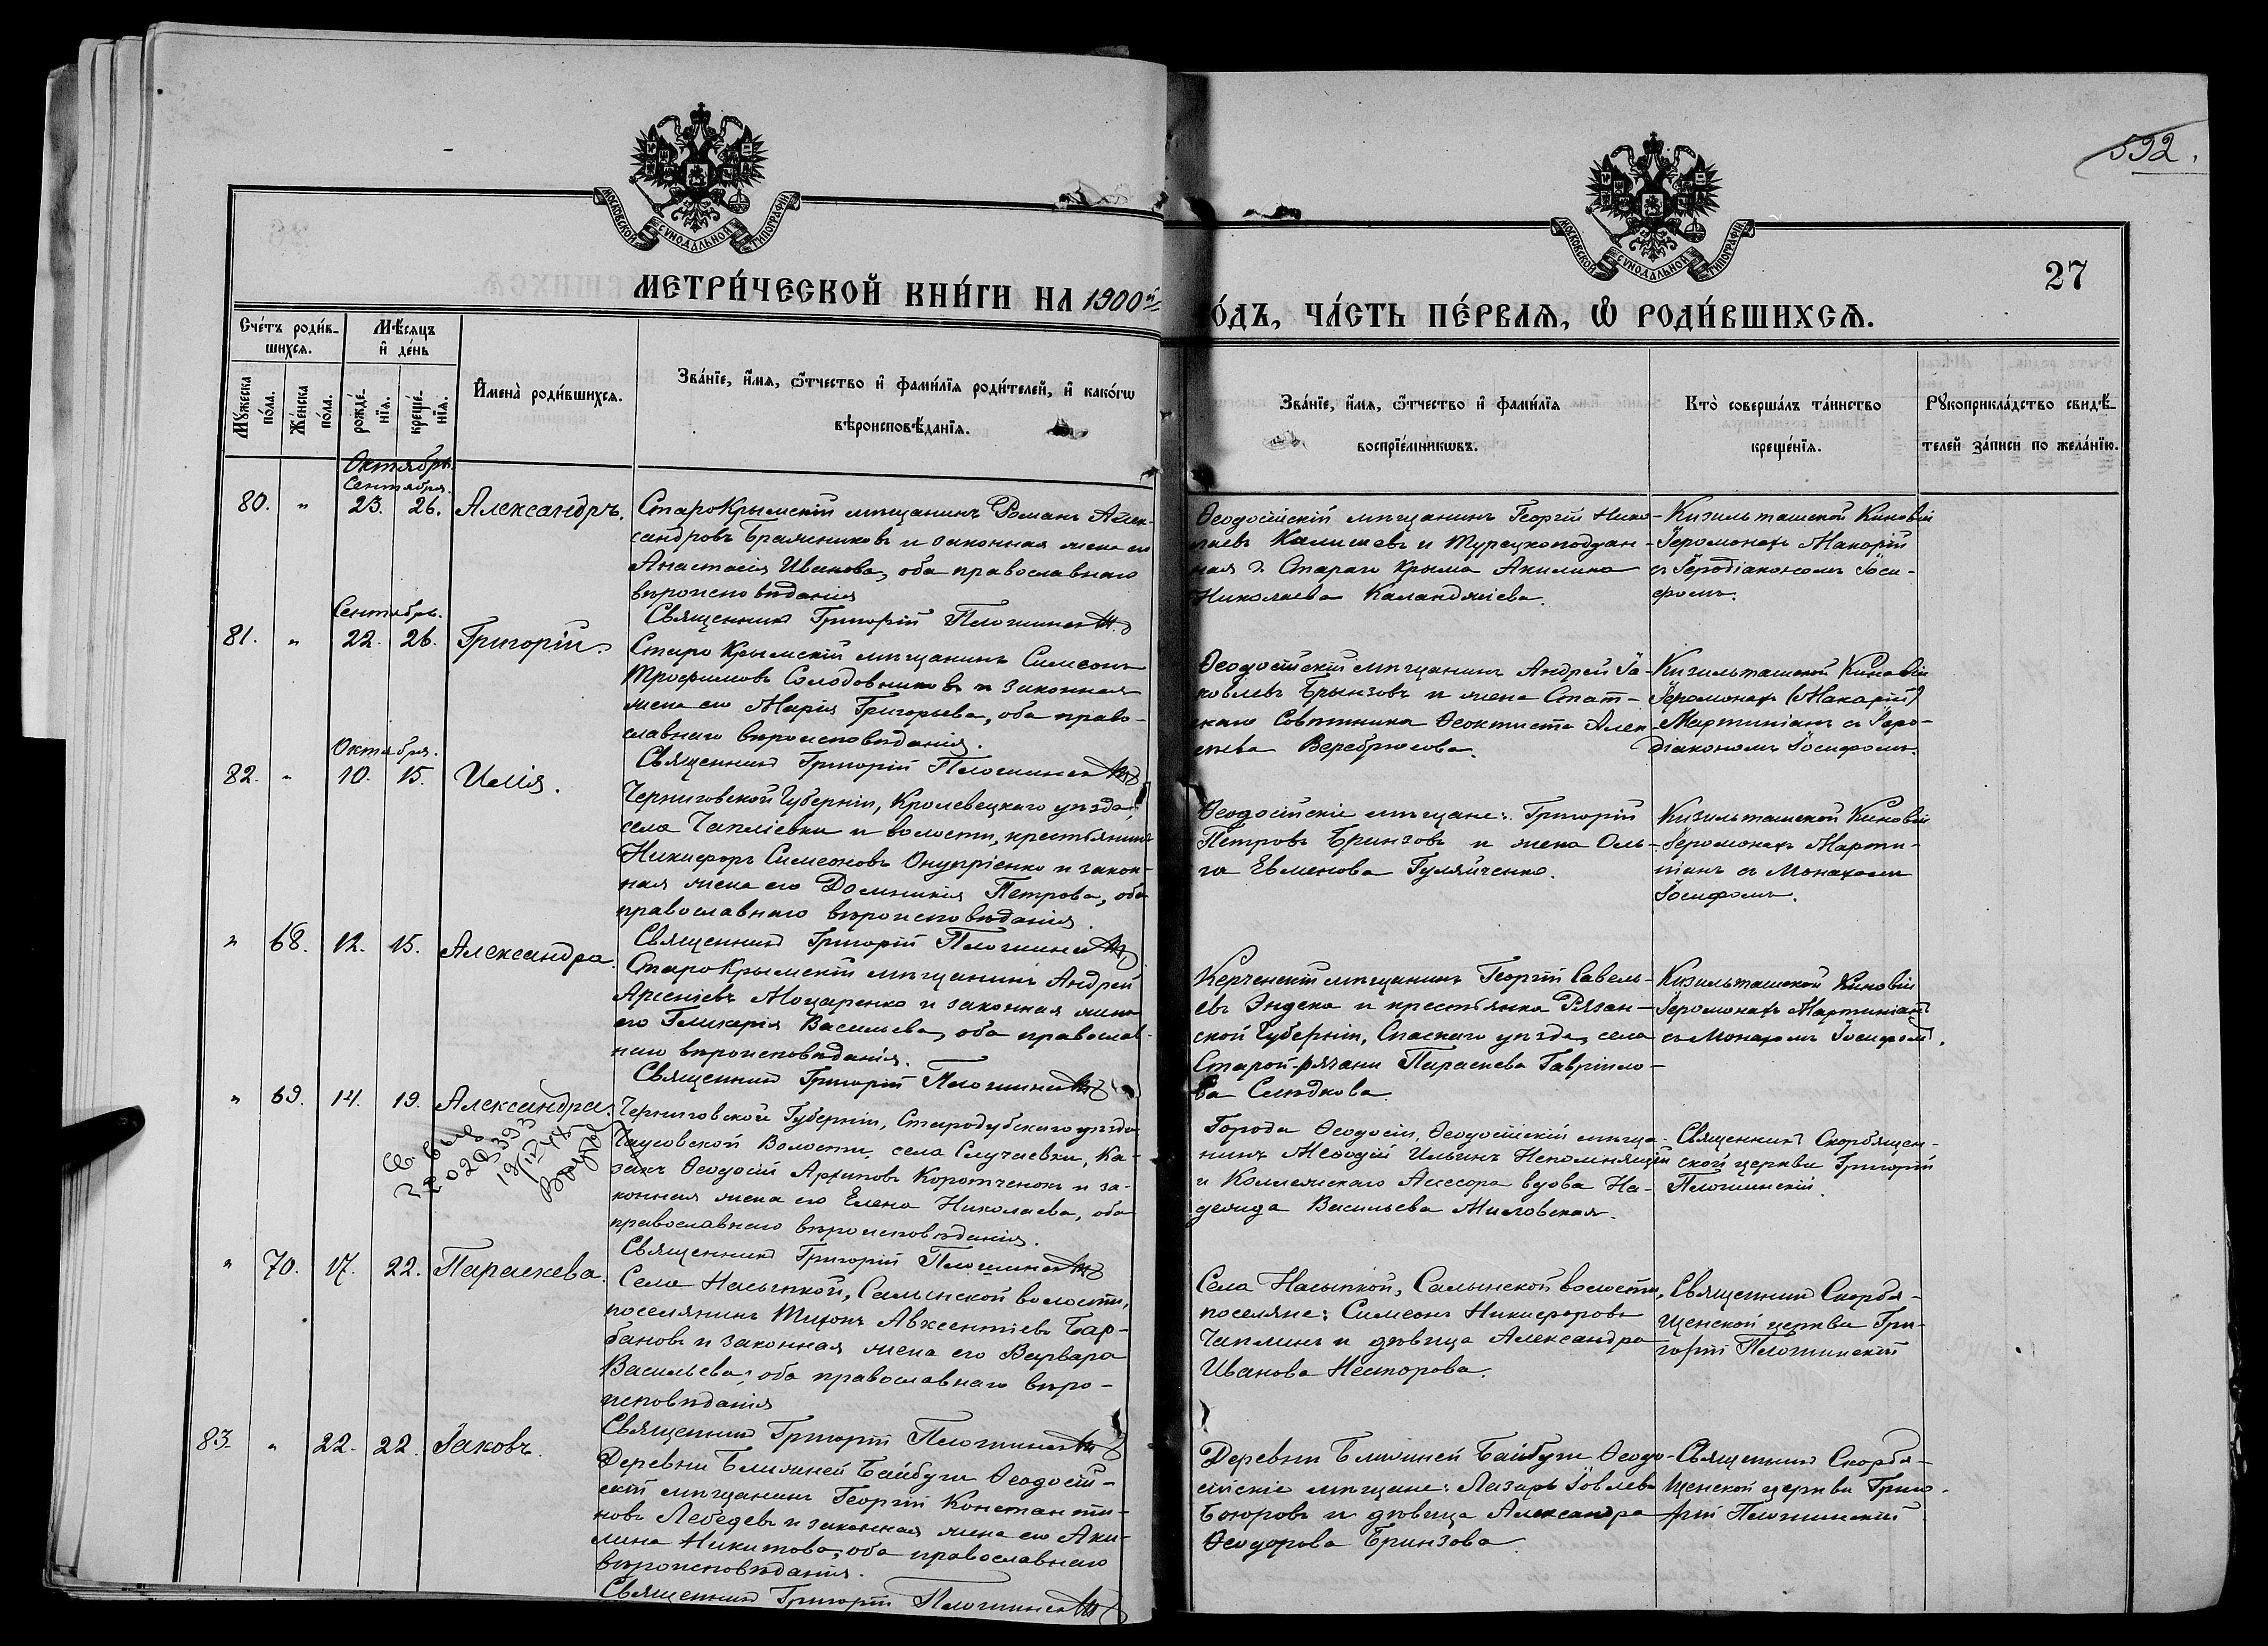 592.
МОСКОВСКОЙ СУНОДАЛЬНОЙ ТИПОГРАФІИ
МОСКОВСКОЙ СУНОДАЛЬНОЙ ТИПОГРАФІИ
27
МЕТРИ́ЧЕСКОЙ КНИ́ГИ НА 1900й
О́ДЪ, ЧА́СТЬ ПЕ́РВАѦ, Ѡ РОДИ́ВШИХСѦ.
Сче́тъ роди́в-
шихсѧ.
Мѣ́сяцъ
и҆ де́нь
Мꙋжеска
по́ла.
Же́нска
по́ла.
рожде́-
нїѧ.
креще́-
нїѧ.
И҆мена̀ роди́вшихсѧ.
Зва́нїе, и҆́мѧ, ѻ҆́тчество и҆ фами́лїѧ роди́телей, и҆ како́гѡ
вѣроисповѣ́данїѧ.
Зва́нїе, и҆́мѧ, ѻ҆́тчество и҆ фами́лїѧ
воспрїе́мникѡвъ.
Кто̀ соверша́лъ та́инство
креще́нїѧ.
Рꙋкоприкла́дство свидѣ́-
телей за́писи по жела́нїю.
Октябрь.
Сентября.
80. " 23. 26. Александръ.
СтароКрымскій мѣщанинъ Романъ Алек-
сандровъ Брамсниковъ и законная жена его
Анастасія Иванова, оба православнаго
вѣроисповѣданія
Священникъ Григорій Плошинскій
Ѳеодосійскій мѣщанинъ Георгій Нико-
лаевъ Калишевъ и Турецкоподдан-
ная г. Стараго Крыма Акилина
Николаева Каланджіева.
Кизильташской Киновіи
Іеромонахъ Макарій
съ Іеродіакономъ Іоси-
фомъ.
Сентябрь.
81. " 22. 26. Григорій.
Старо Крымскій мѣщанинъ Симеонъ
Трофимовъ Солодовниковъ и законная
жена его Марія Григорьева, оба право-
славнаго вѣроисповѣданія.
Священникъ Григорій Плошинскій
Ѳеодосійскій мѣщанинъ Андрей Іа-
ковлевъ Брынзовъ и жена Стат-
скаго Совѣтника Ѳеоктиста Алек-
сѣева Веребрюсова.
Кизильташской Киновіи
Іеромонахъ (Макарій)
Мартиніанъ съ Іеро-
діакономъ Іосифомъ.
Октября.
82. " 10. 15. Илія.
Черниговской Губерніи, Кролевецкаго уѣзда,
села Чапліевки и волости, крестьянинъ
Никифоръ Симеоновъ Онупріенко и закон-
ная жена его Домникія Петрова, оба
православнаго вѣроисповѣданія.
Священникъ Григорій Плошинскій
Ѳеодосійскіе мѣщане: Григорій
Петровъ Бринзовъ и жена Оль-
га Евменова Гуляйченко.
Кизильташской Киновіи
Іеромонахъ Марти-
ніанъ съ Монахомъ
Іосифомъ.
" 68. 12. 15. Александра.
СтароКрымскій мѣщанинъ Андрей
Арсеніевъ Моцаренко и законная жена
его Гликерія Васильева, оба православ-
наго вѣроисповѣданія.
Священникъ Григорій Плошинскій
Керченскій мѣщанинъ Георгій Савель-
евъ Эндека и крестьянка Рязан-
ской Губерніи, Спаскаго уѣзда, села
Старой-рязани Параскева Гавріило-
ва Слѣдкова.
Кизильташской Киновіи
Іеромонахъ Мартиніанъ
съ Монахомъ Іосифомъ.
" 69. 14. 19. Александра.
Черниговской Губерніи, Стародубскаго уѣзда
Чаусовской Волости, села Случаевки, Ка-
закъ Ѳеодосій Архиповъ Коротченокъ и за-
конная жена его Елена Николаева, оба
православнаго вѣроисповѣданія.
Священникъ Григорій Плошинскій
Города Ѳеодосіи, Ѳеодосійскій мѣща-
нинъ Меѳодій Ильинъ Непомнящій
и Коллежскаго Ассесора вдова На-
дежда Васильева Миловская.
Священникъ Скорбящен-
ской церкви Григорій
Плошинскій.
" 70. 17. 22. Параскева.
Села Насыпкой, Салынской волости,
поселянинъ Тихонъ Авксентіевъ Бар-
бановъ и законная жена его Варвара
Васильева; оба православнаго вѣро-
исповѣданія
Священникъ Григорій Плошинскій
Села Насыпкой, Салынской волости,
поселяне: Симеонъ Никифоровъ
Чаплинъ и дѣвица Александра
Иванова Несторова.
Священникъ Скорбя-
щенской церкви Гри-
горій Плошинскій
83. " 22. 22. Іаковъ.
Деревни Ближней Байбуги Ѳеодосій-
скій мѣщанинъ Георгій Константи-
новъ Лебедевъ и законная жена его Аки-
лина Никитова, оба православнаго
вѣроисповѣданія.
Священникъ Григорій Плошинскій
Деревни Ближней Байбуги Ѳеодо-
сійскіе мѣщане: Лазарь Іовлевъ
Боюровъ и дѣвица Александра
Ѳеодорова Бринзова
Священникъ Скорбя-
щенской церкви Григо-
рій Плошинскій